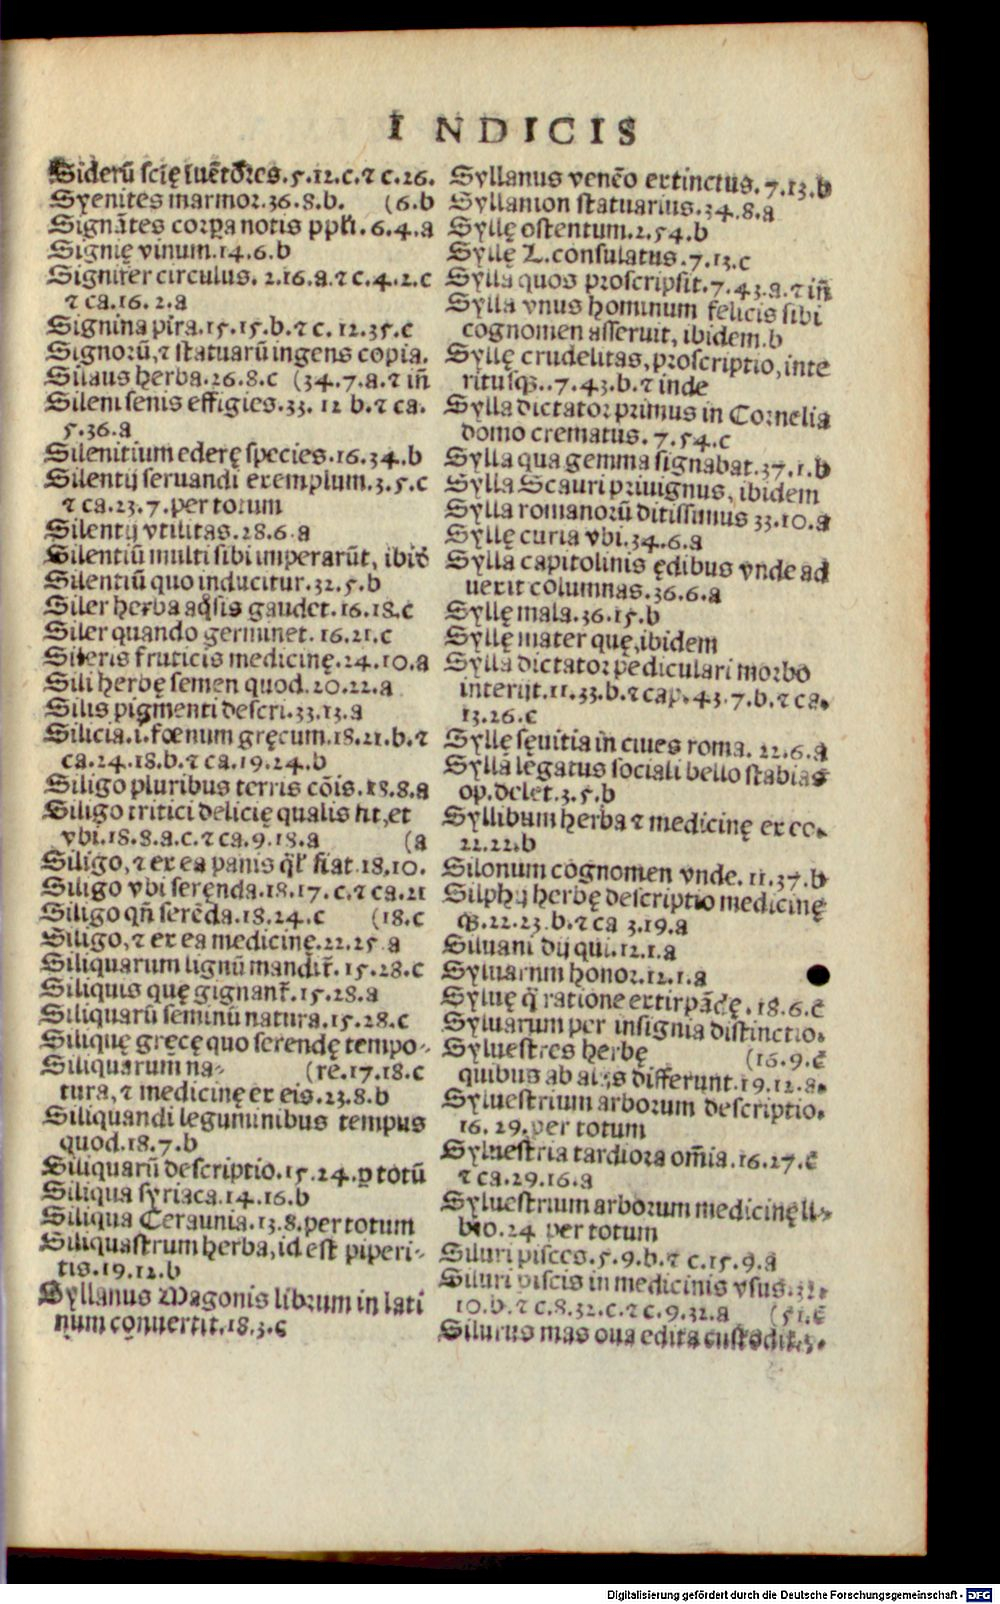 INDICIS
Siderū scię īuētores.5.12.c.⁊ c.26.
Syenites marmor.36.8.b. (6.b
Signātes corpa notis pphi.6.4.a
Signię vinum.14.6.b
Signifer circulus. 2.16.a.⁊ c.4.2.c
⁊ ca.16.2.a
Signina pira.15.15.b.⁊ c.12.35.c
Signorū,⁊ statuarū ingens copia.
Silaus herba.26.8.c (34.7.a.⁊ iñ
Sileni senis effigies.33. 12 b.⁊ ca.
5.36.a
Silenitium ederę species.16.34.b
Silentij seruandi exemplum.3.5.c
⁊ ca.23.7.per totum
Silentij vtilitas.28.6.a
Silentiū multi sibi imperarūt, ibid
Silentiū quo inducitur.32.5.b
Siler herba aqsis gaudet.16.18.c
Siler quando germinet.16.21.c
Sileris fruticis medicinę.24.10.a
Sili herbę semen quod.20.22.a
Silis pigmenti descri.33.13.a
Silicia.i.fœnum gręcum.18.21.b.⁊
ca.24.18.b.⁊ ca.19.24.b
Siligo pluribus terris cōis.18.8.a
Siligo tritici delicię qualis sit,et
vbi.18.8.a.c.⁊ ca.9.18.a (a
Siligo,⁊ ex ea panis ql' fiat.18.10.
Siligo vbi serenda.18.17.c.⁊ ca.21
Siligo qñ serēda.18.24.c (18.c
Siligo,⁊ ex ea medicinę.22.25.a
Siliquarum lignū mandit̃.15.28.c
Siliquis quę gignant̃.15.28.a
Siliquarū seminū natura.15.28.c
Siliquę gręcę quo serendę tempo-
Siliquarum na- (re.17.18.c
tura,⁊ medicinę ex eis.23.8.b
Siliquandi leguminibus tempus
quod.18.7.b
Siliquarū descriptio.15.24.ꝑ totū
Siliqua syriaca.14.16.b
Siliqua Ceraunia.13.8.per totum
Siliquastrum herba,id est piperi-
tis.19.12.b
Syllanus Magonis librum in lati
num conuertit.18.3.c
Syllanus venēo extinctus.7.13.b
Syllanion statuarius.34.8.a
Syllę ostentum.2.54.b
Syllę L.consulatus.7.13.c
Sylla quos proscripsit.7.43.a.⁊ iñ
Sylla vnus hominum felicis sibi
cognomen asseruit, ibidem.b
Syllę crudelitas,proscriptio,inte
ritusqꝫ..7.43.b.⁊ inde
Sylla dictator primus in Cornelia
domo crematus.7.54.c
Sylla qua gemma signabat.37.1.b
Sylla Scauri priuignus, ibidem
Sylla romanorū ditissimus 33.10.a
Syllę curia vbi.34.6.a
Sylla capitolinis ędibus vnde ad
uexit columnas.36.6.a
Syllę mala.36.15.b
Syllę mater quę,ibidem
Sylla dictator pediculari morbo
interijt.11.33.b.⁊ cap.43.7.b.⁊ ca.
13.26.c
Syllę sęuitia in ciues roma. 22.6.a
Sylla legatus sociali bello stabias
op.delet.3.5.b
Syllibum herba ⁊ medicinę ex eo.
22.22.b
Silonum cognomen vnde.11.37.b
Silphij herbę descriptio medicinę
qꝫ.22.23.b.⁊ ca 3.19.a
Siluani dij qui.12.1.a
Syluarum honor.12.1.a
Syluę q̃ ratione extirpādę.18.6.c
Syluarum per insignia distinctio.
Syluestres herbę (16.9.c
quibus ab alijs differunt.19.12.a.
Syluestrium arborum descriptio.
16.29.per totum
Syluestria tardiora om̃ia.16.27.c
⁊ ca.29.16.a
Syluestrium arborum medicinę li-
bro.24 per totum
Siluri pisces.5.9.b.⁊ c.15.9.a
Siluri piscis in medicinis vsus.32.
10.b.⁊ c.8.32.c.⁊ c.9.32.a (51.c
Silurus mas oua edita custodit.9.
Digitalisierung gefördert durch die Deutsche Forschungsgemeinschaft - DFG